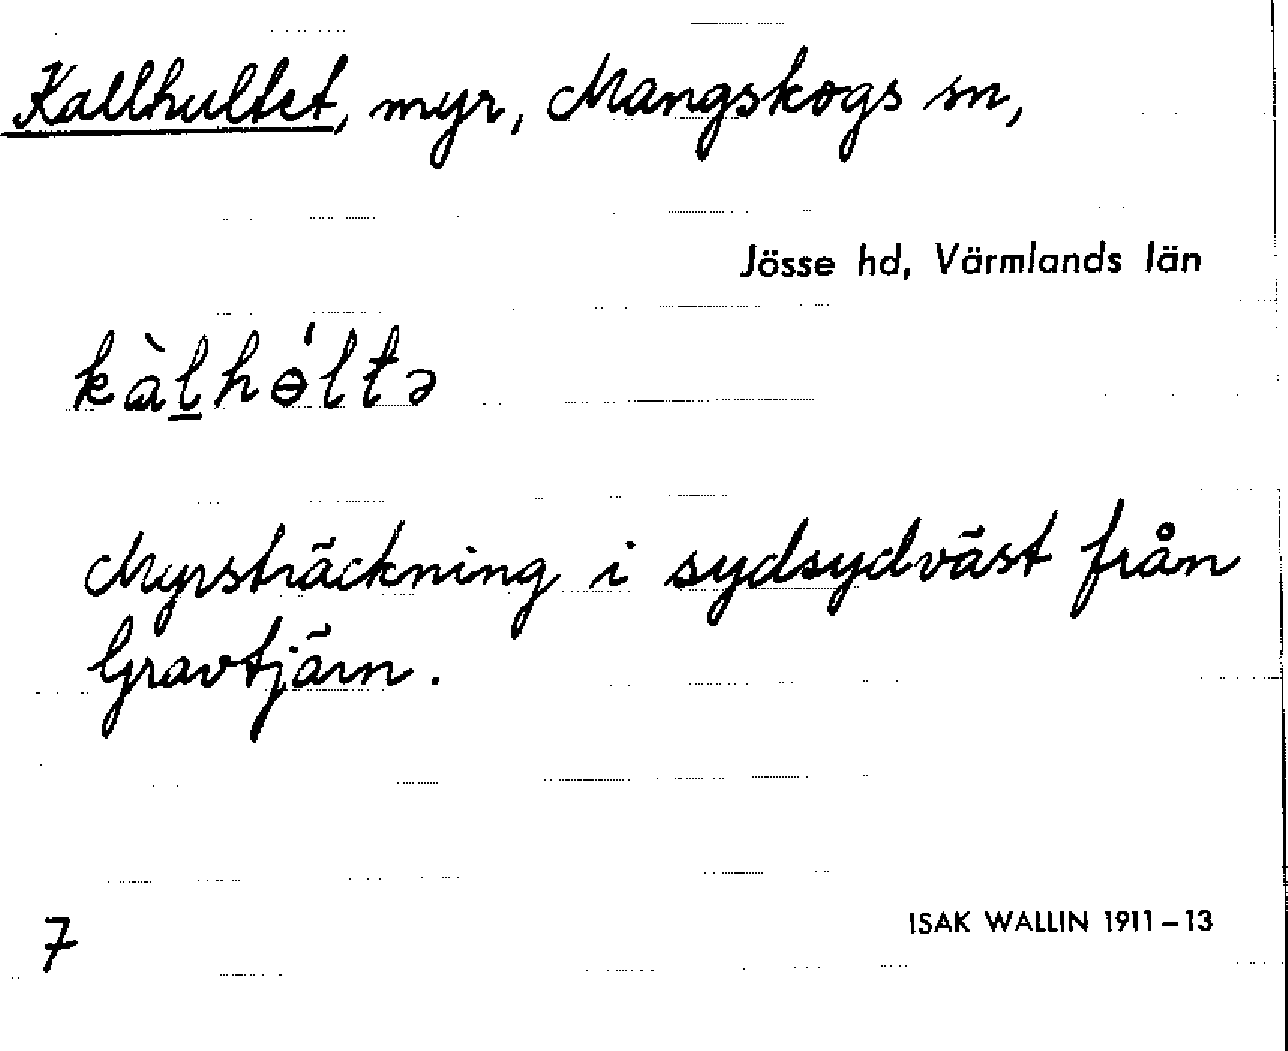 Kallhultet, myr, Mangskogs sn,
Jösse hd, Värmlands län
kàl̲hɵ́ltə
Myrsträckning i sydsydväst från
Gravtjärn.
7
ISAK WALLIN 1911–13